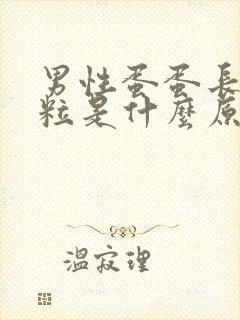 男性蛋蛋長
粒是什麼原
溫寂理